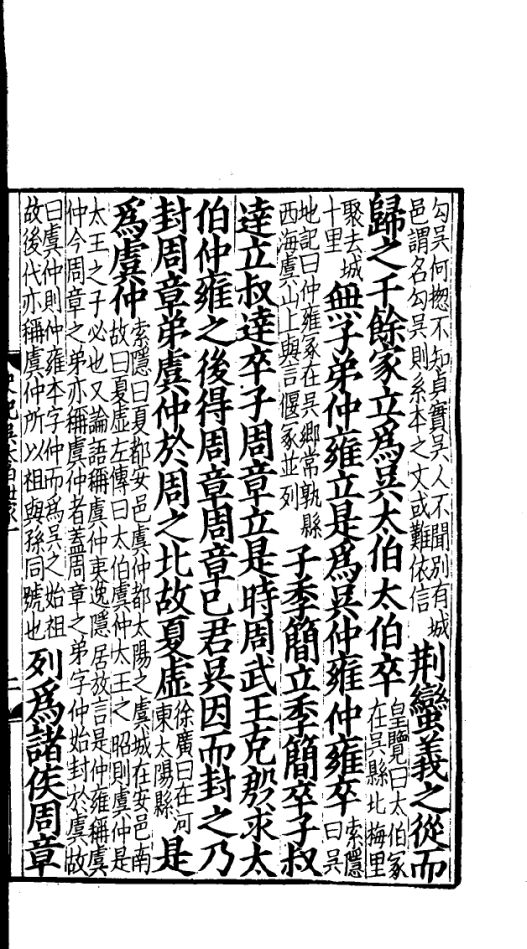 勾吳何揔不知貞實吳人不聞別有城
邑謂名勾吳則系本之文或難依信
荆蠻義之從而
歸之千餘家立爲吳太伯太伯卒
皇覽曰太伯冢
在吳縣北梅里
聚去城
十里
無子弟仲雍立是爲吳仲雍仲雍卒
索隱
曰吳
地記曰仲雍冢在吳鄉常孰縣
西海虞山上與言偃冢並列
子季簡立季簡卒子叔
達立叔達卒子周章立是時周武王克殷求太
伯仲雍之後得周章周章已君吳因而封之乃
封周章弟虞仲於周之北故夏虛
徐廣曰在河
東太陽縣
是
爲虞仲
索隱曰夏都安邑虞仲都太陽之虞城在安邑南
故曰夏虛左傳曰太伯虞仲太王之昭則虞仲是
太王之子必也又論語稱虞仲夷逸隱居放言是仲雍稱虞
仲今周章之弟亦稱虞仲者蓋周章之弟字仲始封於虞故
曰虞仲則仲雍本字仲而爲吳之始祖
故後代亦稱虞仲所以祖與孫同號也
列爲諸侯周章